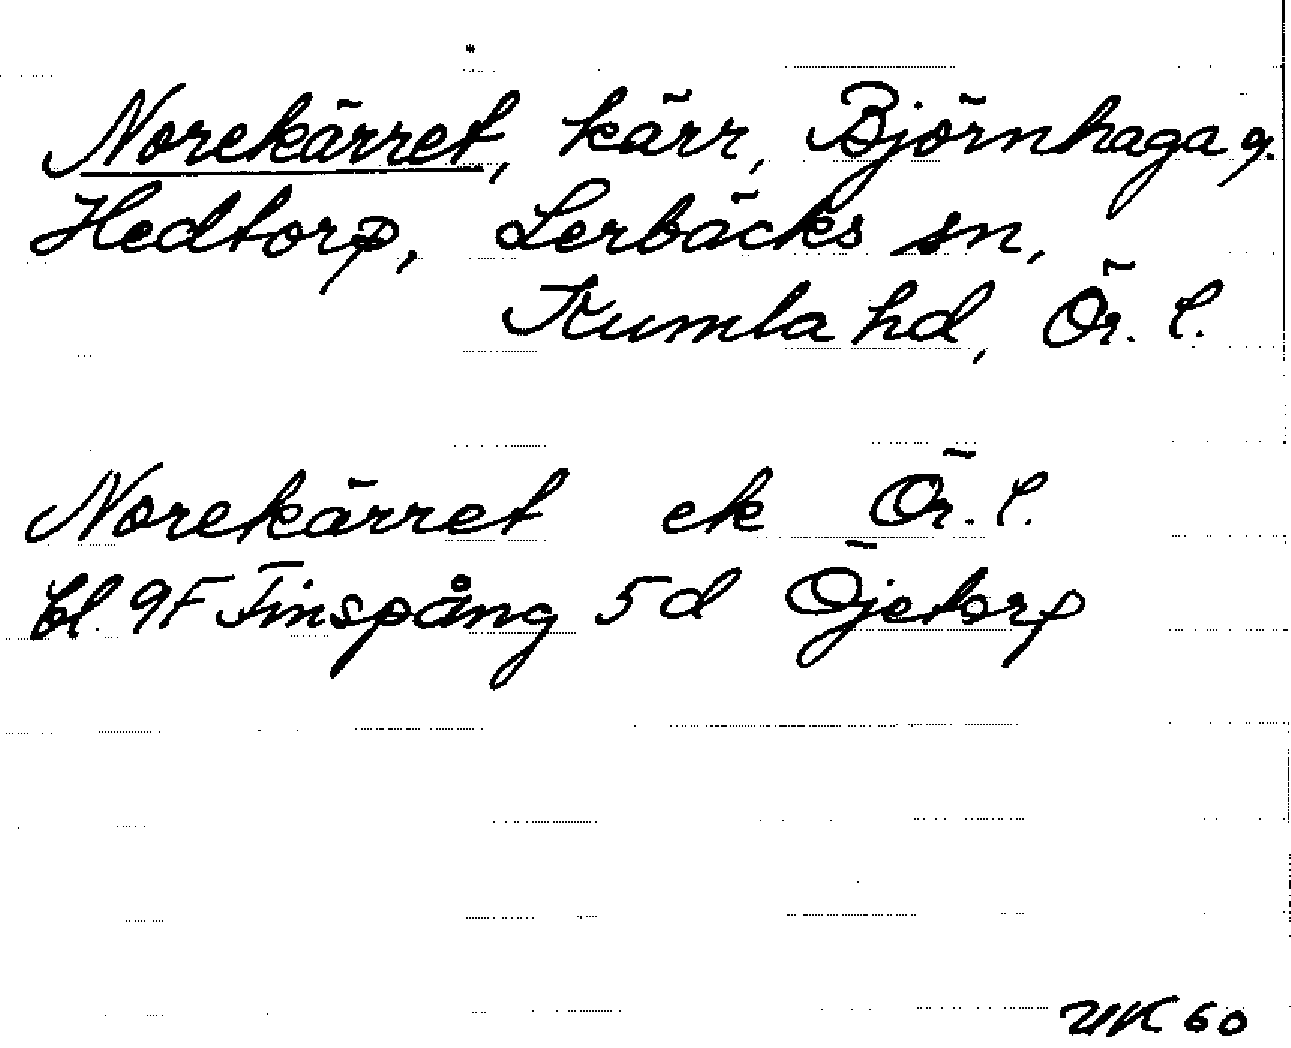 Norekärret, kärr, Björnhaga g.
Hedtorp, Lerbäcks sn,
Kumla hd, Ör. l.
Norekärret ek Ör. l.
bl. 9F Finspång 5d Öjetorp
UK 60